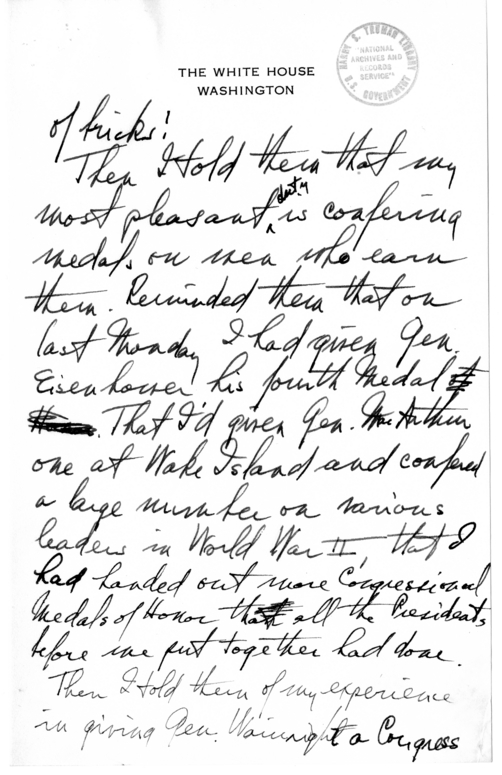 THE WHITE HOUSE
WASHINGTON
HARRY S. TRUMAN LIBRARY
"NATIONAL
ARCHIVES AND
RECORDS
SERVICE"
U.S. GOVERNMENT
of tricks!
Then I told them that my
duty
most pleasant is confering
medals on men who earn
them. Reminded them that on
last Monday I had given Gen.
Eisenhower his fourth Medal
That I'd given Gen. MacArthur
one at Wake Island and confered
a large number on various
leaders in World War II, that I
had handed out more Congressional
Medals of Honor than all the Presidents
before me put together had done.
Then I told them of my experience
in giving Gen. Wainright a Congress